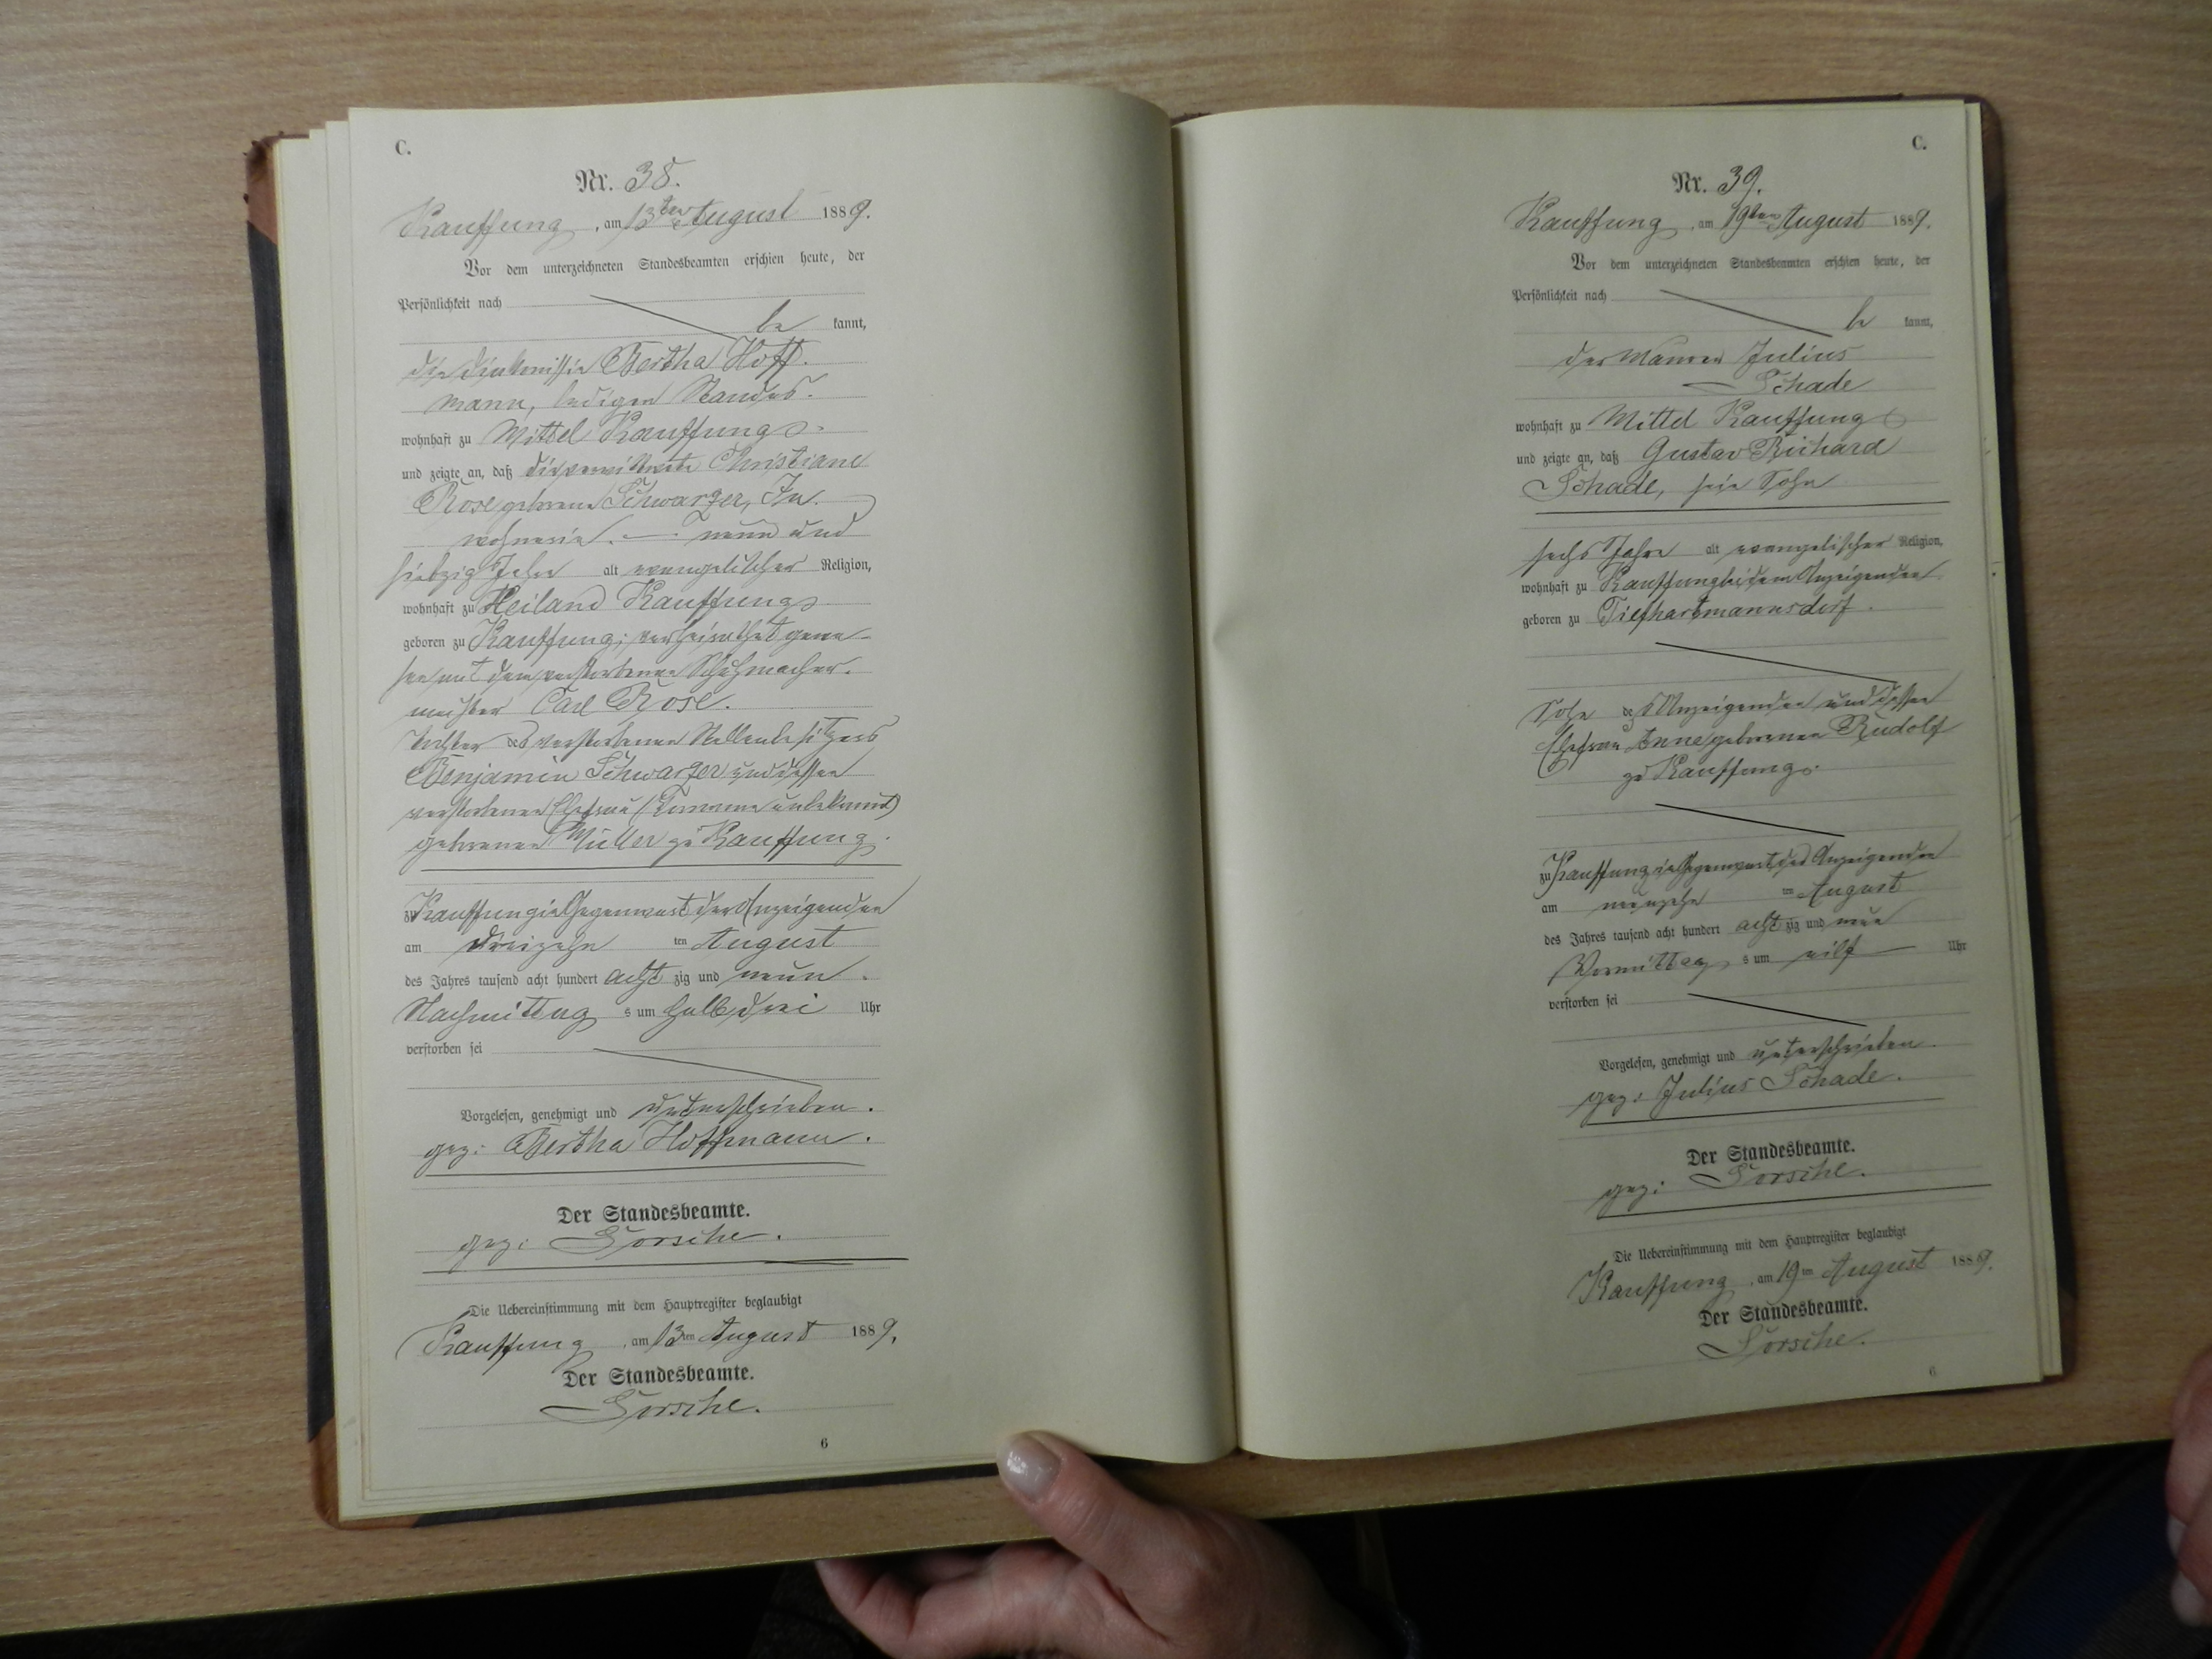 C.
Nr. 38.
Kauffung, am 13ten August 1889.
Vor dem unterzeichneten Standesbeamten erschien heute, der
Persönlichkeit nach
be kannt,
die Bertha Hoff-
mann, ledigen Standes.
wohnhaft zu Mittel Kauffung
und zeigte an, daß die verwittwete Christiane
Rose geborene Schwarzer, In-
wohnerin. neun und
siebzig Jahre alt evangelischer Religion,
wohnhaft zu Heiland Kauffung
geboren zu Kauffung; verheirathet gewe-
sen mit dem verstorbenen Schuhmacher-
meister Carl Rose.
Tochter des verstorbenen Stellenbesitzers
Benjamin Schwarzer und dessen
verstorbenen Ehefrau (Vorname unbekannt)
geborenen Müller zu Kauffung.
zu Kauffung in Gegenwart der Anzeigenden
am dreizehn ten August
des Jahres tausend acht hundert acht zig und neun
Nachmittag s um halb drei Uhr
verstorben sei
Vorgelesen, genehmigt und unterschrieben.
gez: Bertha Hoffmann.
Der Standesbeamte.
gez:
Die Uebereinstimmung mit dem Hauptregister beglaubigt
Kauffung, am 13ten August 1889.
Der Standesbeamte.
6
C.
Nr. 39.
Kauffung, am 19ten August 1889.
Vor dem unterzeichneten Standesbeamten erschien heute, der
Persönlichkeit nach
be kannt,
der Maurer Julius
Schade
wohnhaft zu Mittel Kauffung
und zeigte an, daß Gustav Richard
Schade, sein Sohn
sechs Jahre alt evangelischer Religion,
wohnhaft zu Kauffung bei dem Anzeigenden
geboren zu Tiefhartmannsdorf.
Sohn des Anzeigenden und dessen
Ehefrau Anne geborenen Rudolf
zu Kauffung.
zu Kauffung in Gegenwart des Anzeigenden
am neunzehn ten August
des Jahres tausend acht hundert acht zig und neun
Vormittag s um eilf Uhr
verstorben sei
Vorgelesen, genehmigt und unterschrieben.
gez: Julius Schade.
Der Standesbeamte.
gez:
Die Uebereinstimmung mit dem Hauptregister beglaubigt
Kauffung, am 19ten August 1889.
Der Standesbeamte.
6